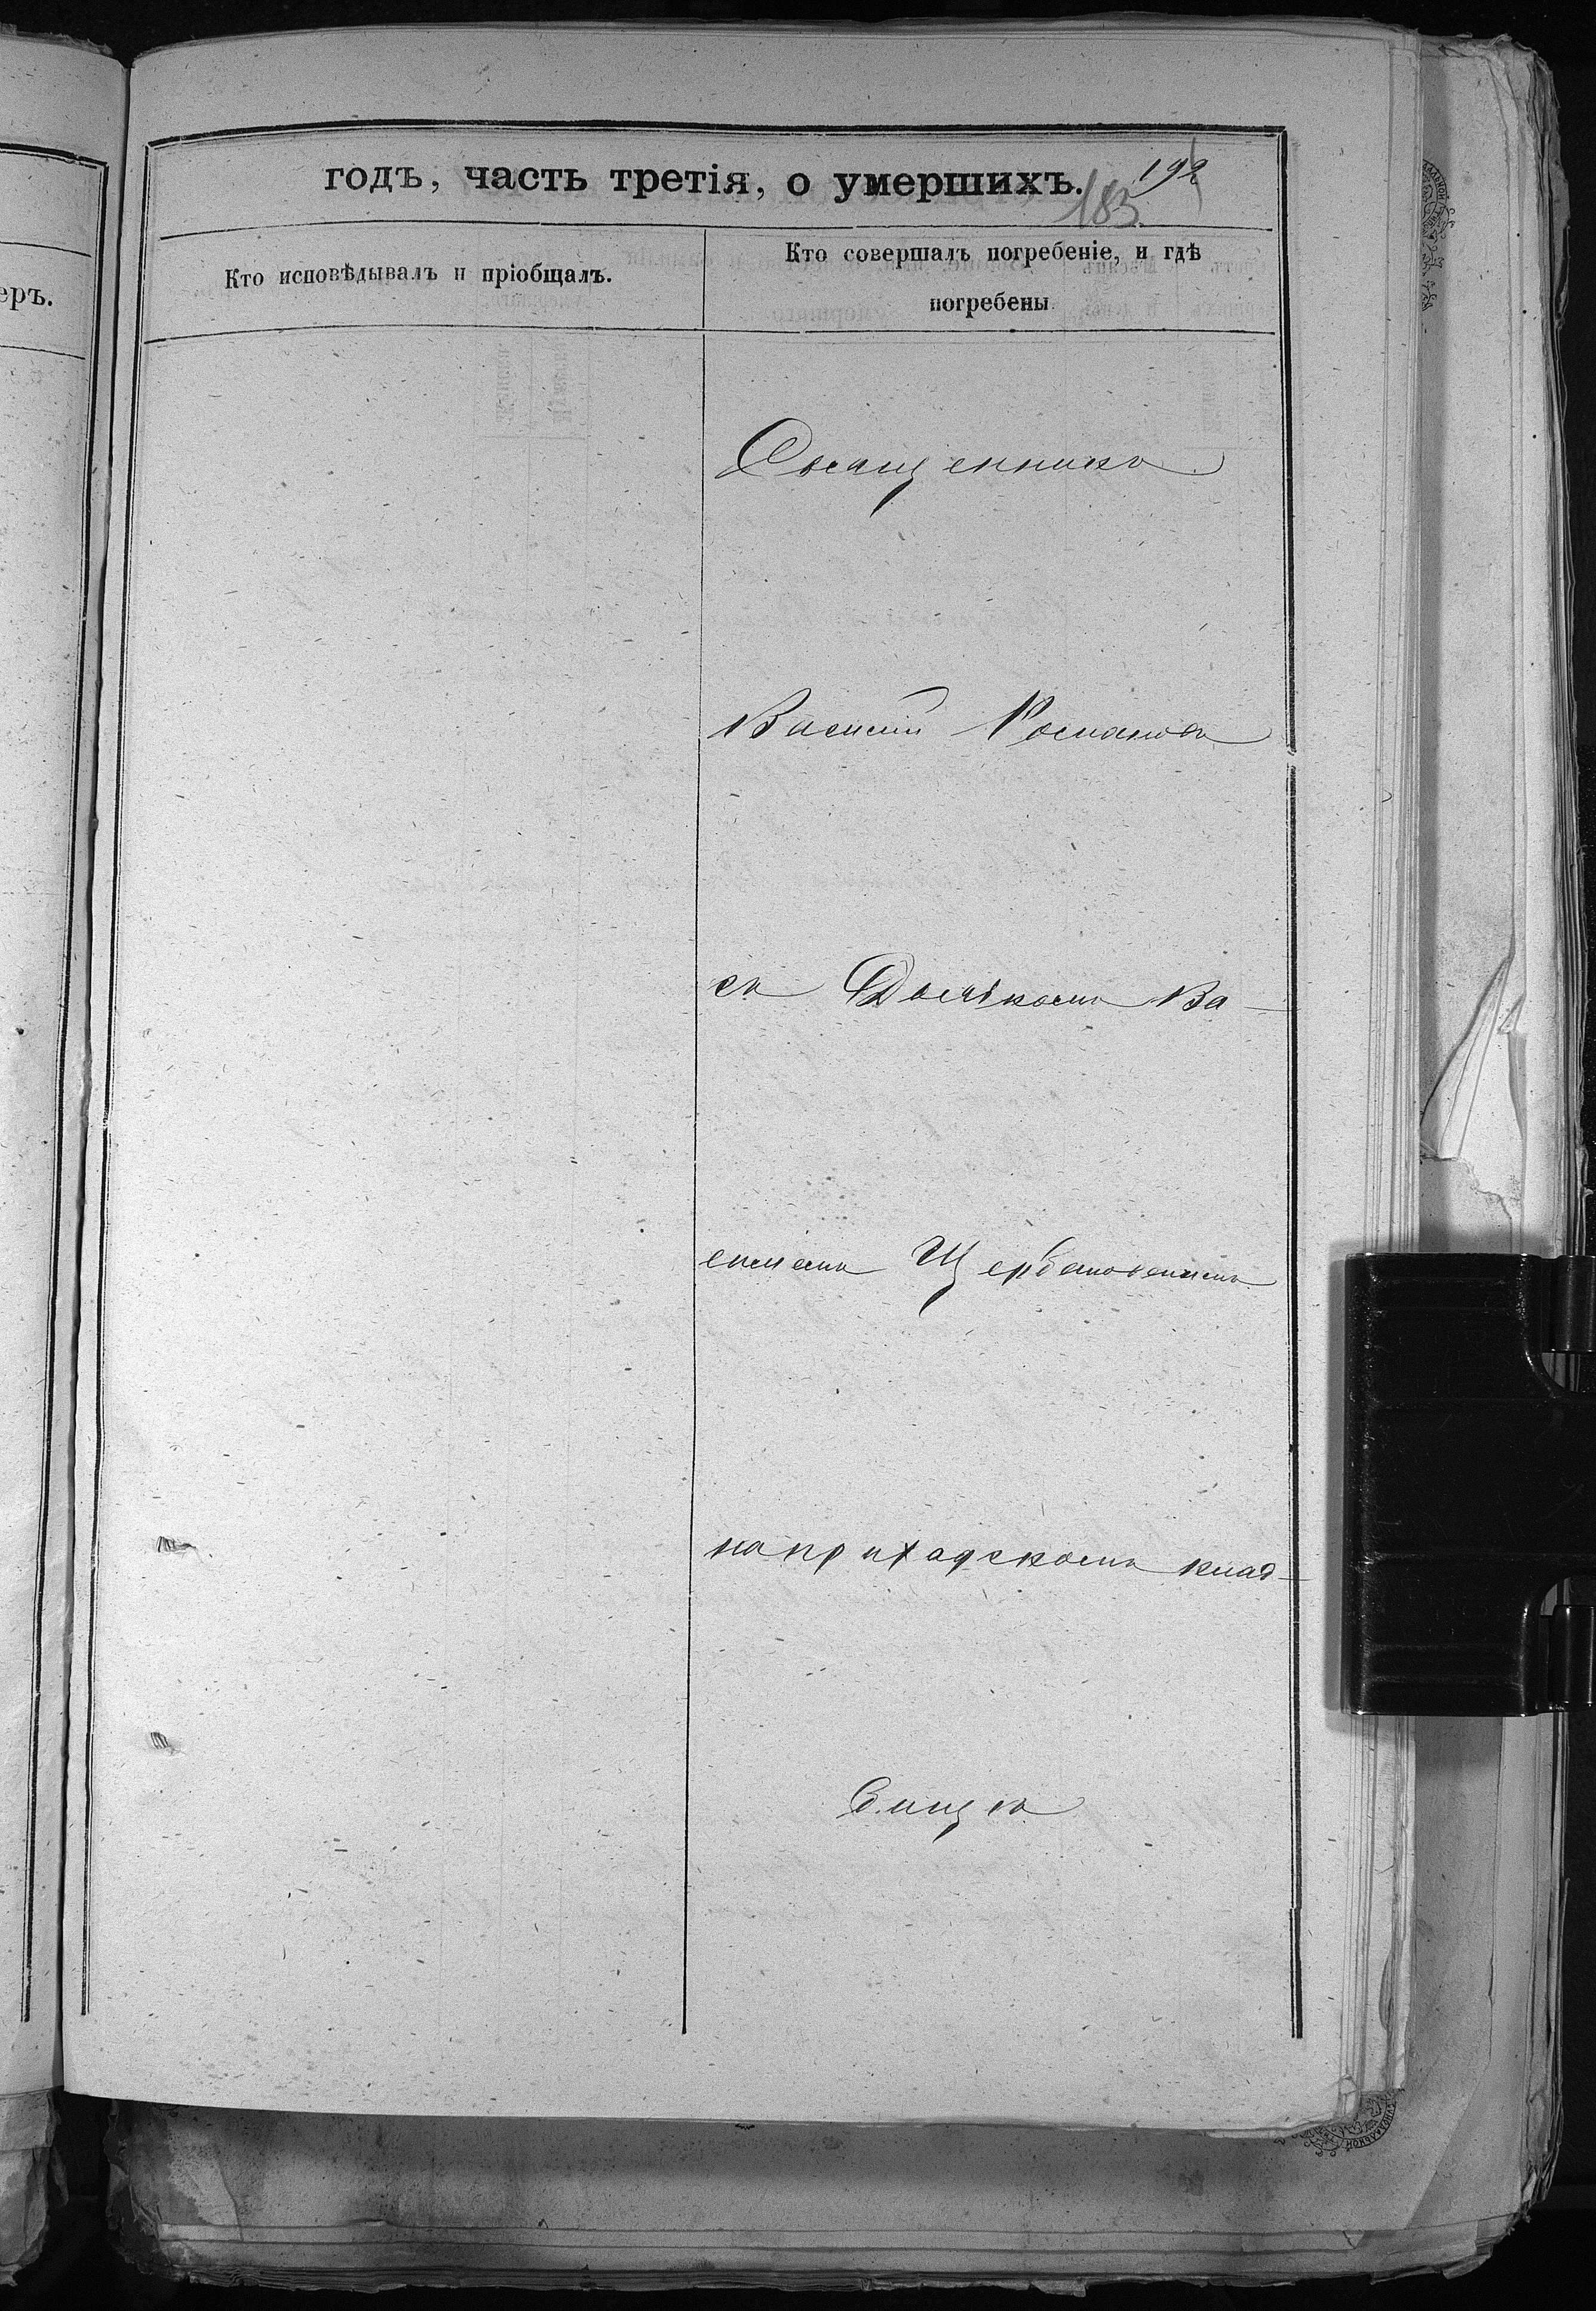 годъ, часть третія, о умершихъ.
192
183.
Кто исповѣдывалъ и пріобщалъ.
Кто совершалъ погребеніе, и гдѣ
погребены
еръ.
Священникъ
Василій Романовъ
съ Дьячкомъ Ва-
силіемъ Щербановскимъ
на приходскомъ клад-
бищѣ